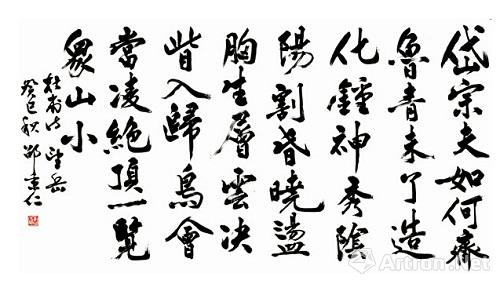 岱宗夫如何齊
魯青未了造
化鍾神秀陰
陽割昏曉盪
胸生層雲決
眥入歸鳥會
當凌絕頂一覽
眾山小
杜甫诗望岳
癸巳秋邵秉仁
Artron.Net